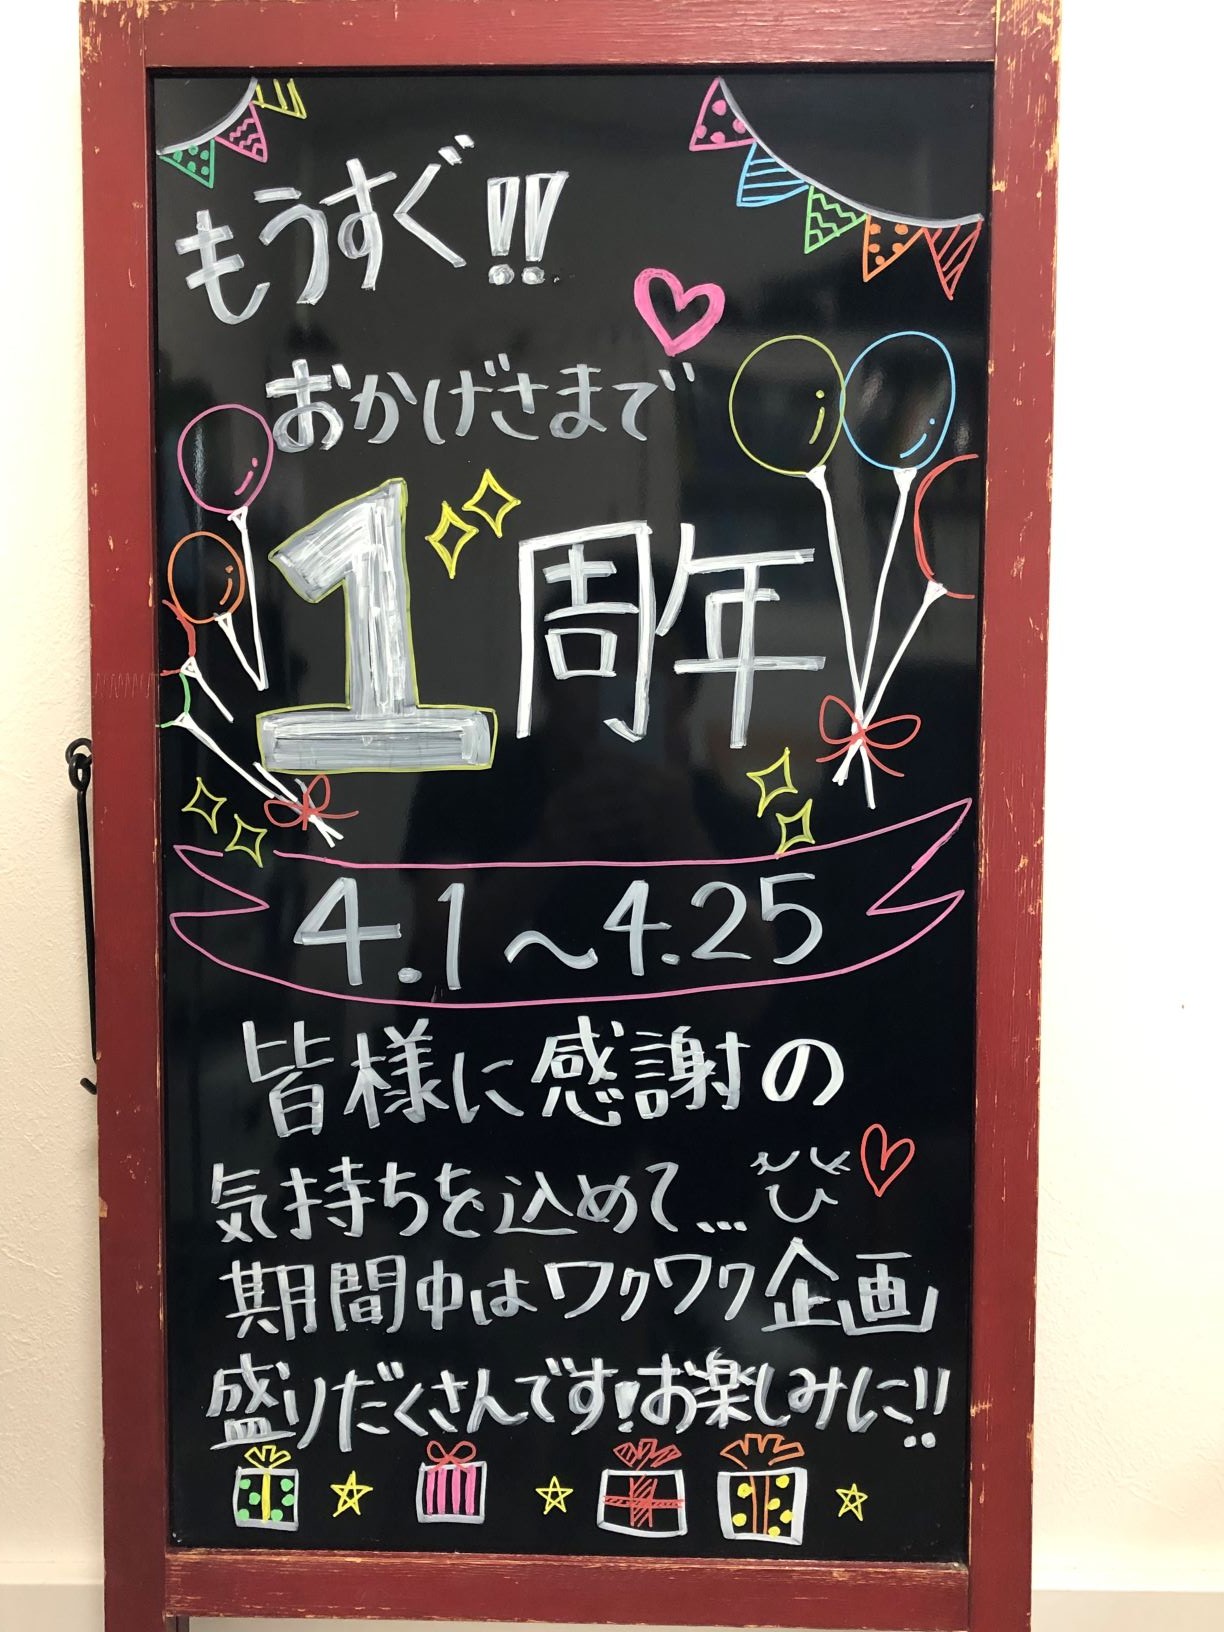 もうすぐ!!
おかげさまで
1周年
4.1～4.25
皆様に感謝の
気持ちを込めて...
期間中はワクワク企画
盛りだくさんです!お楽しみに!!